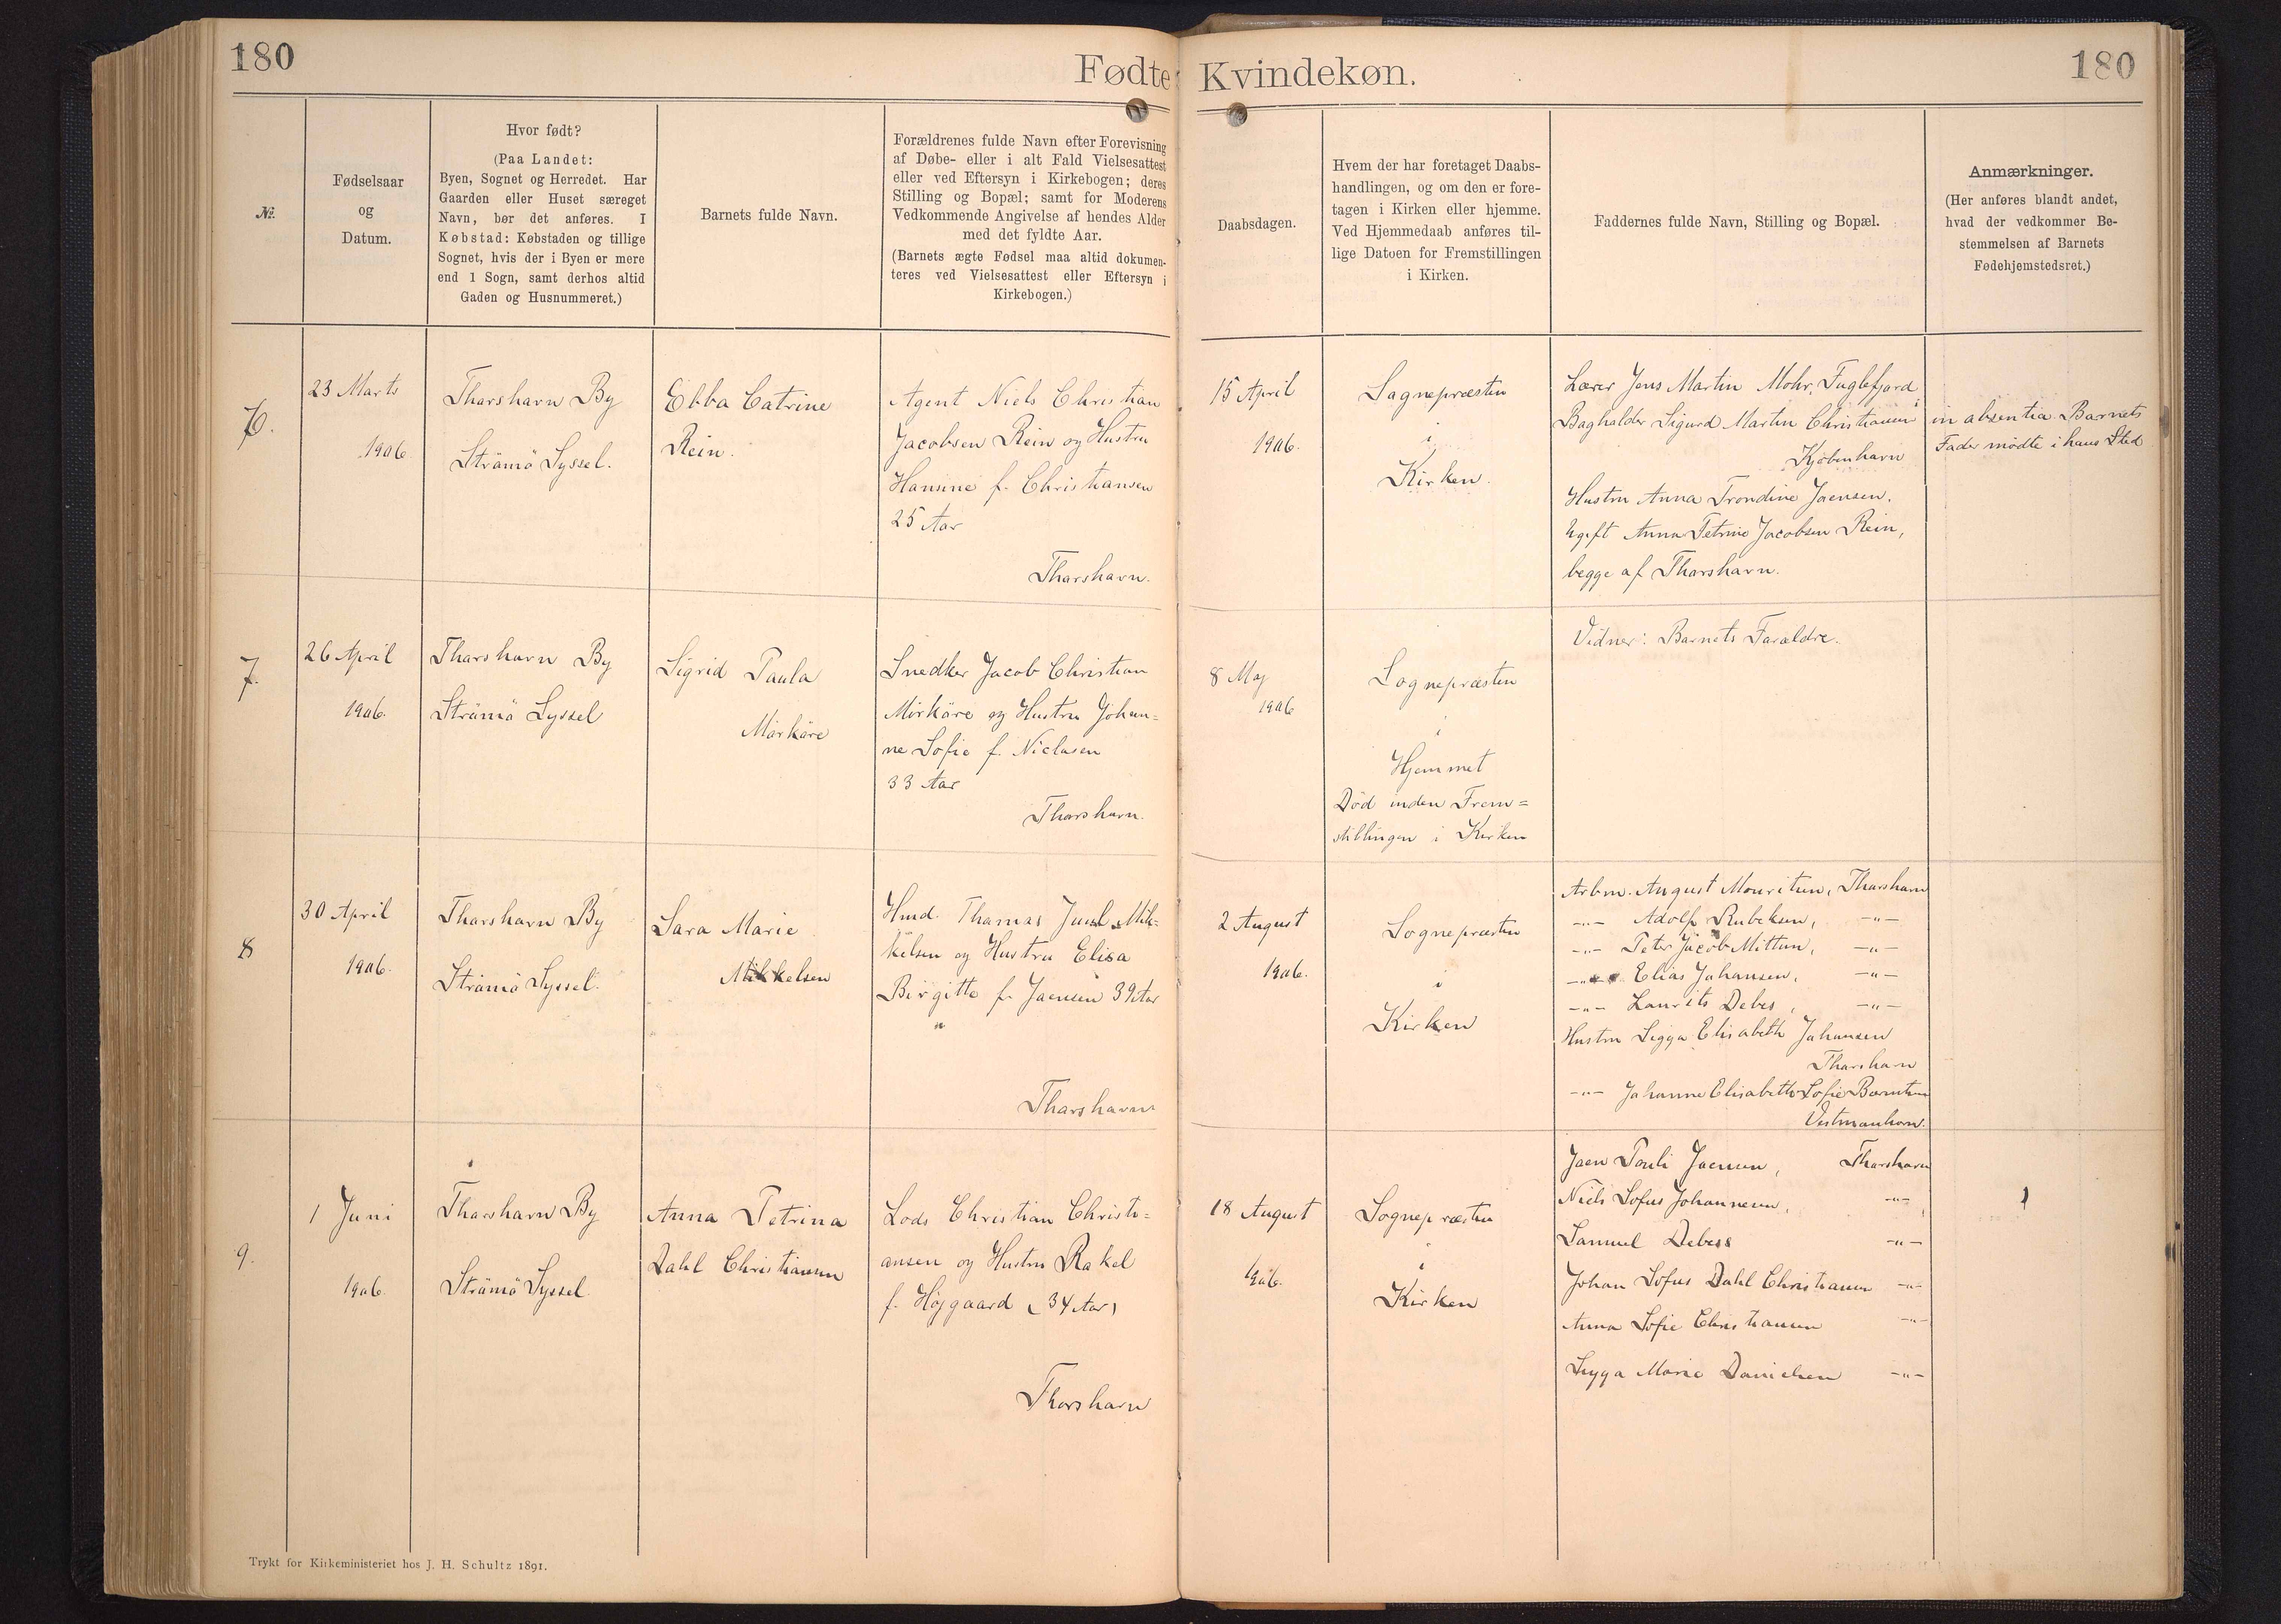 180
Fødte
Kvindekøn.
180
№.
Fødselsaar
og
Datum.
Hvor født?
(Paa Landet:
Byen, Sognet og Herredet. Har
Gaarden eller Huset særeget
Navn, bør det anføres. I
Købstad: Købstaden og tillige
Sognet, hvis der i Byen er mere
end 1 Sogn, samt derhos altid
Gaden og Husnummeret.)
Barnets fulde Navn.
Forældrenes fulde Navn efter Forevisning
af Døbe- eller i alt Fald Vielsesattest
eller ved Eftersyn i Kirkebogen; deres
Stilling og Bopæl; samt for Moderens
Vedkommende Angivelse af hendes Alder
med det fyldte Aar.
(Barnets ægte Fødsel maa altid dokumen-
teres ved Vielsesattest eller Eftersyn i
Kirkebogen.)
Daabsdagen.
Hvem der har foretaget Daabs-
handlingen, og om den er fore-
tagen i Kirken eller hjemme.
Ved Hjemmedaab anføres til-
lige Datoen for Fremstillingen
i Kirken.
Faddernes fulde Navn, Stilling og Bopæl.
Anmærkninger.
(Her anføres blandt andet,
hvad der vedkommer Be-
stemmelsen af Barnets
Fødehjemstedsret.)
6.
23 Marts
1906
Thorshavn By
Strömö Syssel.
Ebba Catrine
Rein.
Agent Niels Christian
Jacobsen Rein og Hustru
Hansine f. Christiansen
25 Aar
Thorshavn.
15 April
1906.
Sognepræsten
i
Kirken.
Lærer Jens Martin Mohr, Fuglefjord
Bogholder Sigurd Martin Christiansen
Kjøbenhavn
Hustru Anna Trondine Joensen.
Ugift Anna Petrine Jacobsen Rein,
begge af Thorshavn.
in absentia. Barnets
Fader mödte i hans Sted
7.
26 April
1906.
Thorshavn By
Strömö Syssel
Sigrid Paula
Mörköre
Snedker Jacob Christian
Mörköre og Hustru Johan=
ne Sofie f. Niclasen
33 Aar
Thorshavn.
8 Maj
1906
Sognepræsten
i
Hjemmet
Död inden Frem=
stillingen i Kirken
Vidner: Barnets Forældre.
8
30 April
1906.
Thorshavn By
Strömö Syssel.
Sara Marie
Mikkelsen
Hmd. Thomas Juul Mik-
kelsen og Hustru Elisa
Birgitte f. Joensen 39 Aar
"
Thorshavn
2 August
1906.
Sognepræsten
i
Kirken
Arbm. August Mouritsen, Thorshavn
-"- Adolf Rubeksen, -"-
-"- Peter Jacob Mittun, -"-
-"- Elias Johansen, -"-
-"- Laurits Debes, -"-
Hustru Sigga Elisabeth Johansen
Thorshavn
-"- Johanne Elisabeth Sofie
Vestmanhavn.
9.
1 Juni
1906.
Thorshavn By
Strömö Syssel.
Anna Petrina
Dahl Christiansen
Lods Christian Christi=
ansen og Hustru Rakel
f. Højgaard (34 Aar)
Thorshavn
18 August
1906.
Sognepræsten
i
Kirken
Joen Pouli Joensen, Thorshavn
Niels Sofus Johannesen, -"-
Samuel Debess -"-
Johan Sofus Dahl Christiansen -"-
Anna Sofie Christiansen -"-
Sigga Marie Danielsen -"-
Trykt for Kirkeministeriet hos J. H. Schultz 1891.